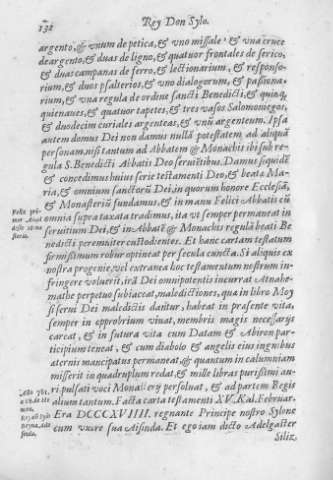 132
Rey Don Sylo.
argento, & vnum de petica, & vno missale & vna cruce
de argento, & duas de ligno, & quatuor frontales de serico,
& duas campanas de ferro, & lectionarium, & responso-
rium, & duos psalterios, & vno dialogorum, & pasiona-
rium, & vna regula de ordine sancti Benedicti, & quinq,
quienaues, & quatuor tapetes, & tres vasos Salomoniegos,
& duodecim curiales argenteas, & vnũ argenteum. Ipsa
autem domus Dei non damus nullã potestatem ad aliquã
personam, nisi tantum ad Abbatem & Monachis ibi sub re-
gula S. Benedicti Abbatis Deo seruitibus. Damus siquidẽ
& concedimus huius serie testamenti Deo, & beatæ Ma-
ria, & omnium sanctorũ Dei, in quorum honore Ecclesiã,
& Monasteriũ fundamus, & in manu Felici Abbatis cũ
omnia supra taxata tradimus, ita vt semper permaneat in
seruitium Dei, & in Abbatẽ & Monachis regulã beati Be
nedicti peremniter custodientes. Et hanc cartam testatum
firmissimum robur optineat per secula cuncta. Si aliquis ex
nostra progenie, vel extranea hoc testamentum nostrum in-
fringere voluerit, irã Dei omnipotentis incurrat, Atnahe-
mathe perpetuo subiaceat, maledictiones, qua in libro Moy
si serui Dei maledictis dantur, habeat in præsente vita,
semper in opprobrium viuat, membris magis necessarys
careat, & in futura vita cum Datam & Abiron par-
ticipium teneat, & cum diabolo & angelis eius ignibus
æternis mancipatus permaneat, & quantum in calumniam
misserit in quadruplum redat, & mille libras purissimi au-
ri pulsati voci Monastery persoluat, & ad partem Regis
alium tantum. Facta carta testamenti XV. Kal. Februar.
Era DCCCXVIIII. regnante Principe nostro Sylone
cum vxore sua Aisinda. Et ego iam dicto Adelgaster
Siliz
Felix pri-
mer Abad
deste mona
sterio.
Año 781.
Rey